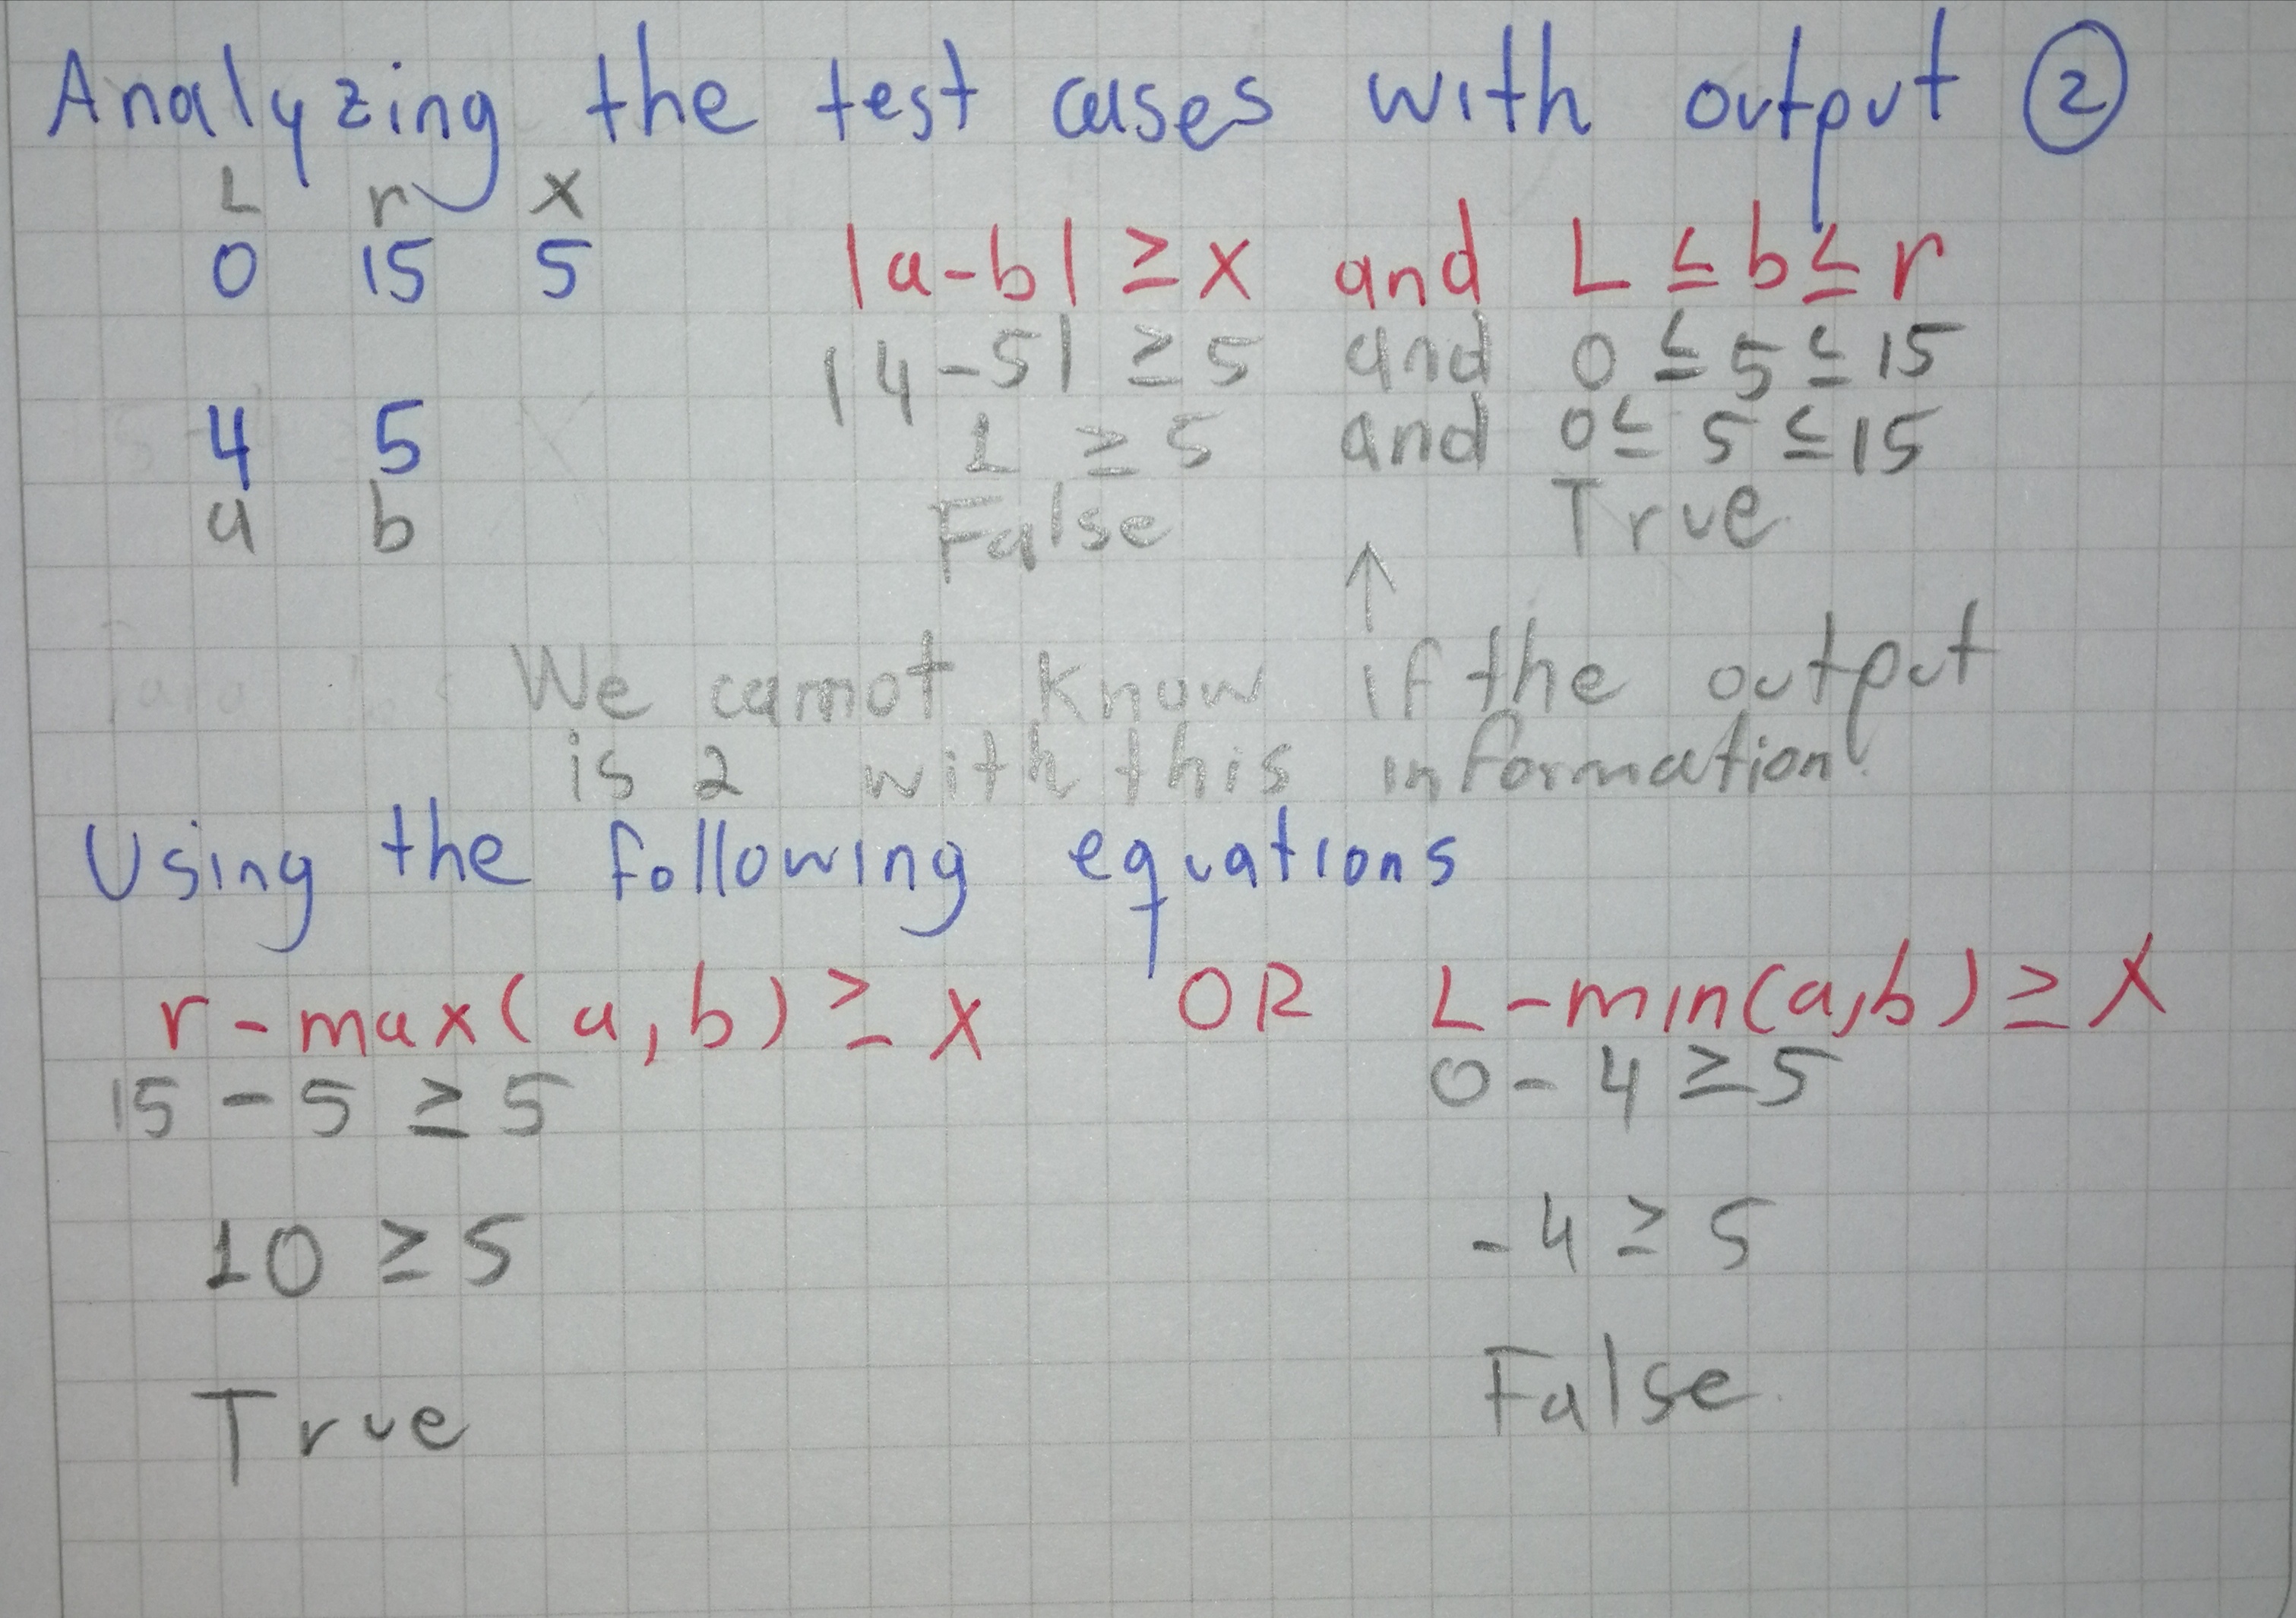 Analyzing the test cases with output 2
L r x
0 15 5
|a-b| ≥ x and L ≤ b ≤ r
|4-5| ≥ 5 and 0 ≤ 5 ≤ 15
4 5
1 ≥ 5 and 0 ≤ 5 ≤ 15
a b
False True
↑
We cannot know if the output
is 2 with this information.
Using the following equations
r - max(a,b) ≥ x OR L - min(a,b) ≥ x
15 - 5 ≥ 5 0 - 4 ≥ 5
10 ≥ 5 -4 ≥ 5
True False